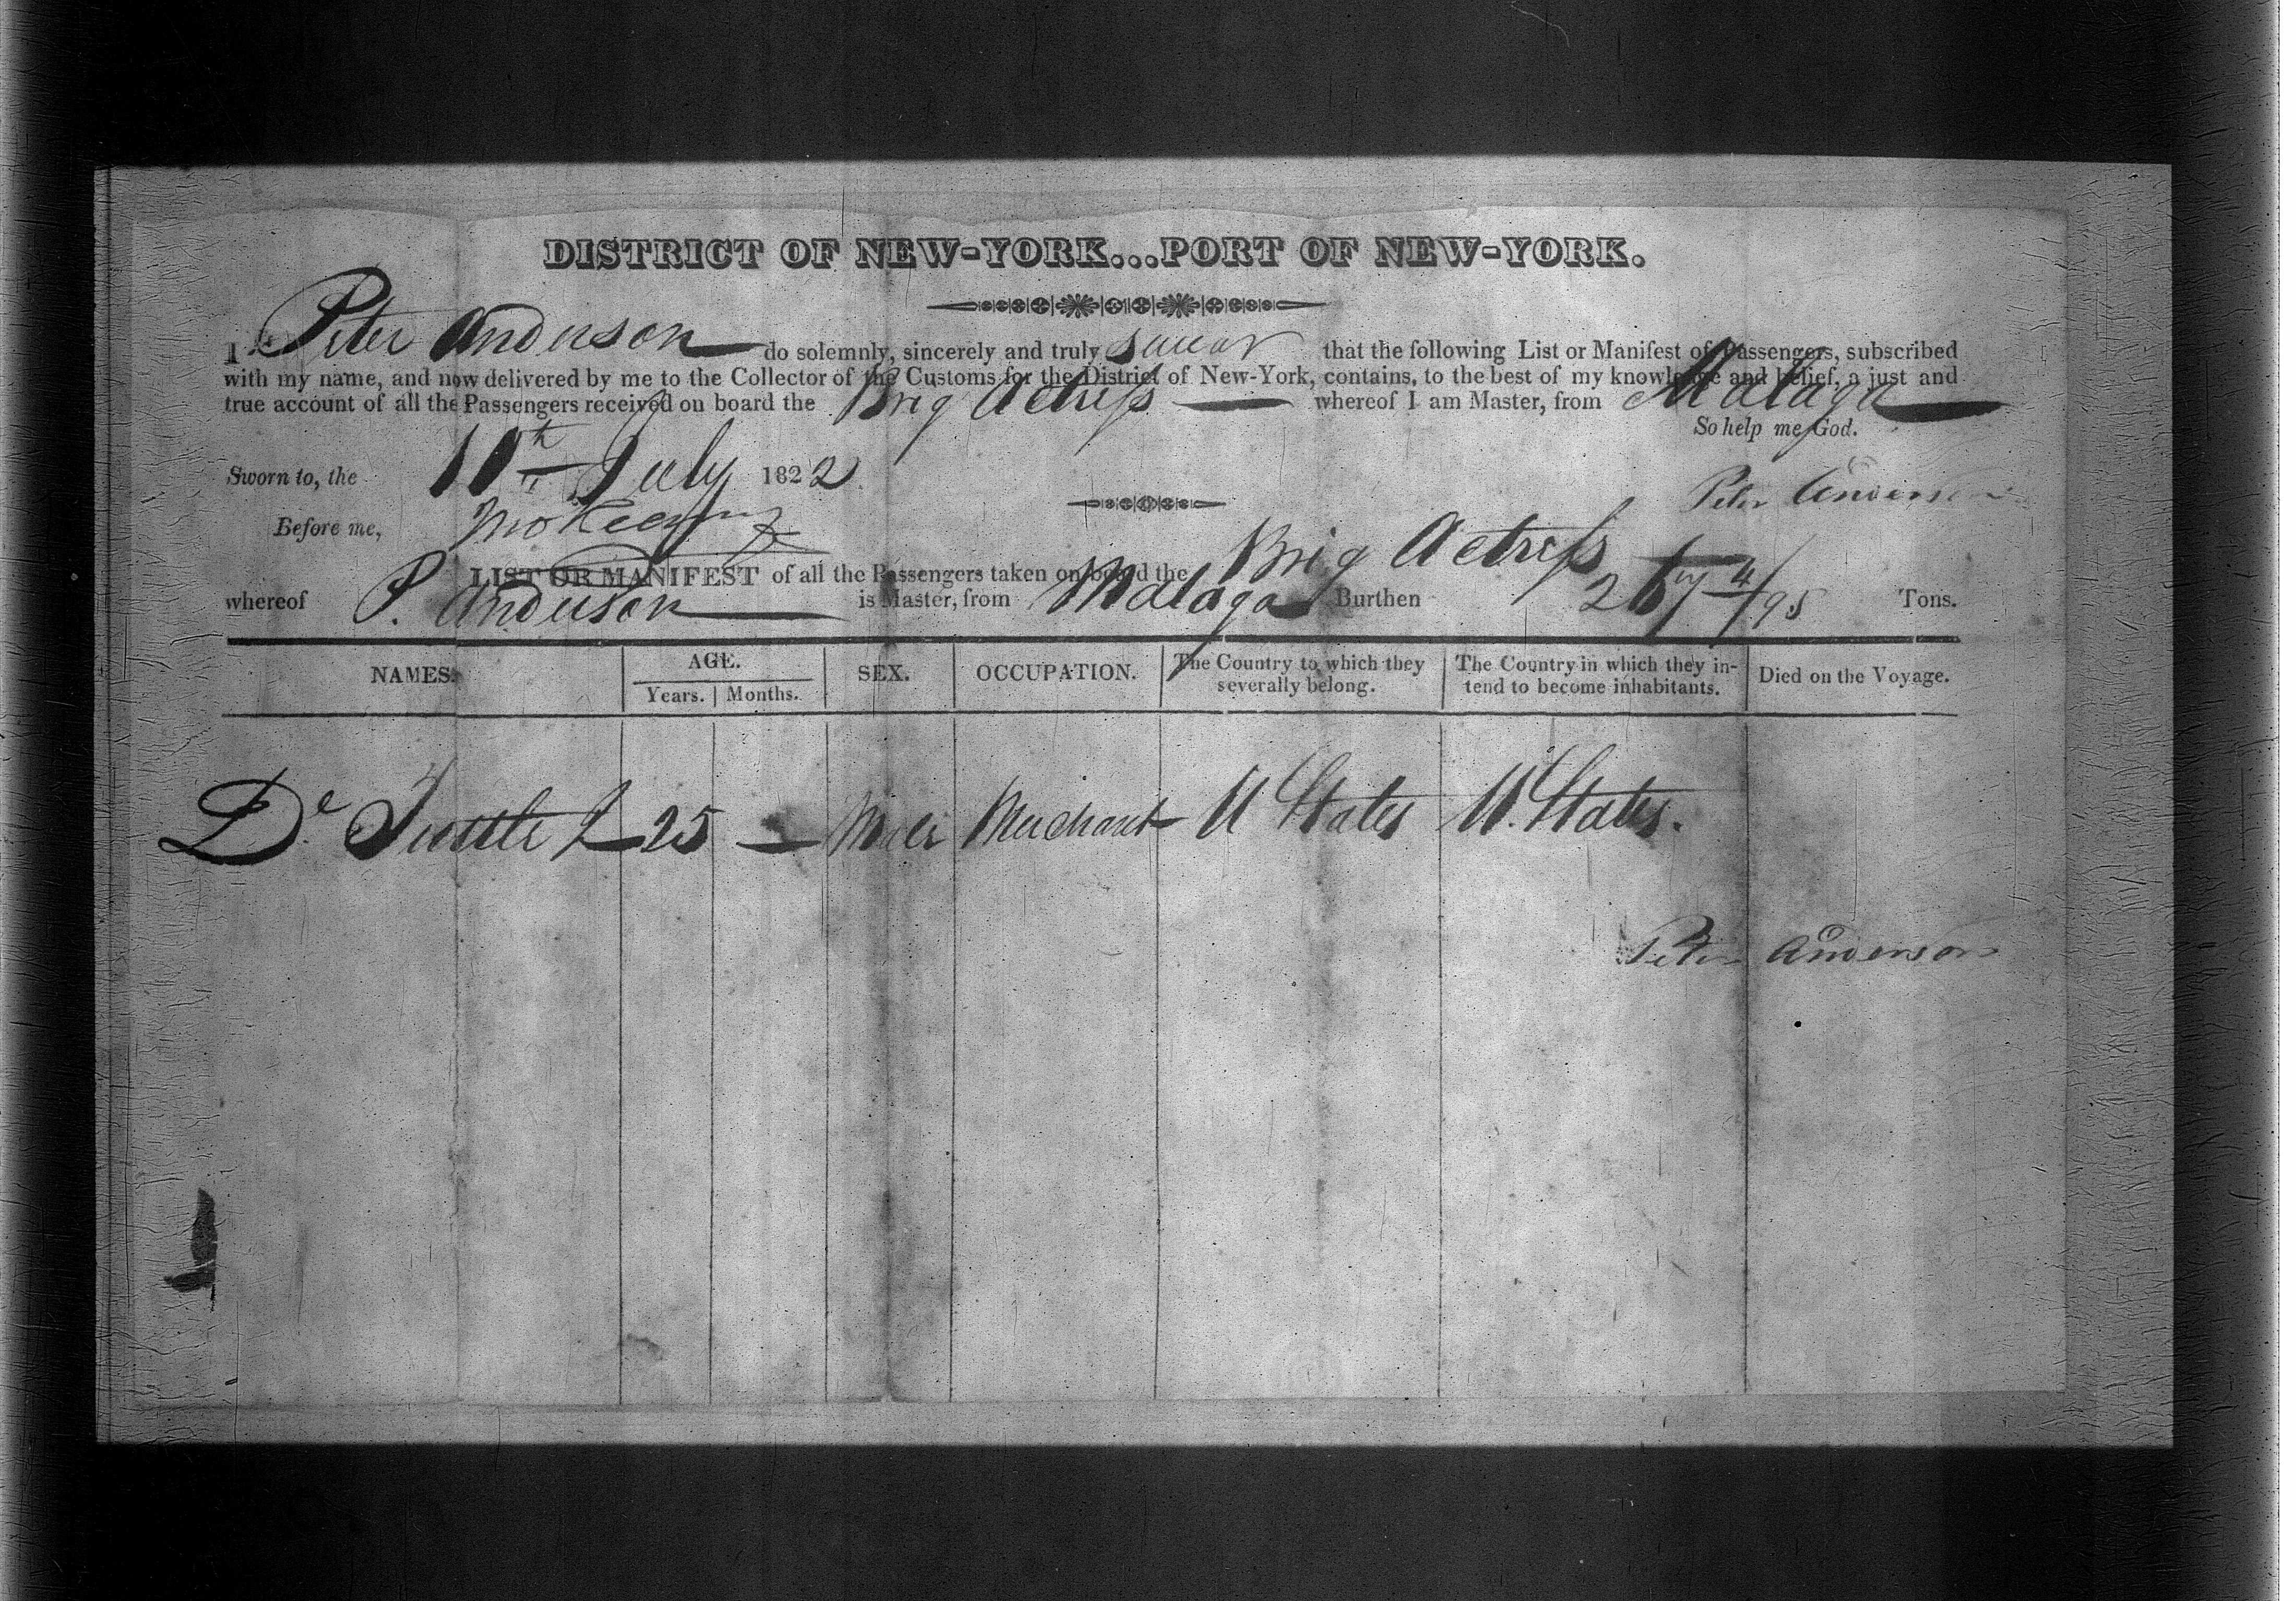 DISTRICT OF NEW-YORK...PORT OF NEW-YORK.
I Peter Anderson do solemnly, sincerely and truly Swear that the following List or Manifest of Passengers, subscribed
with my name, and now delivered by me to the Collector of the Customs for the District of New-York, contains, to the best of my knowledge and belief, a just and
true account of all the Passengers received on board the Brig Actress whereof I am Master, from Malaga
So help me God.
Sworn to, the 10th July 1822
Peter Anderson
Before me,
LIST OR MANIFEST of all the Passengers taken on board the Brig Actress
whereof P. Anderson is Master, from Malaga Burthen 267 4/95 Tons.
NAMES. AGE. SEX. OCCUPATION. The Country to which they severally belong. The Country in which they intend to become inhabitants. Died on the Voyage.
Years. Months.
25 — Male Merchant U States U. States.
Peter Anderson